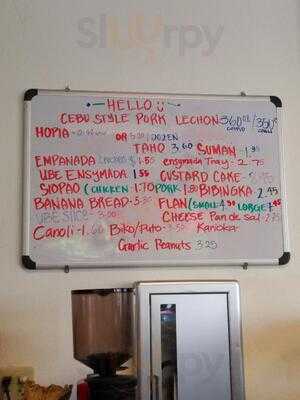 Sluurpy
HELLO
CEBU STYLE PORK LECHON
HOPIA OR 5.00/DOZEN
TAHO 3.60 SUMAN
EMPANADA CHICKEN 1.50 ensymada Tray - 2.75
UBE ENSYMADA 1.55 CUSTARD CAKE
SIOPAO (CHICKEN 1.70 PORK BIBINGKA 2.45
BANANA BREAD FLAN (SMALL LORGE
UBE SLICE - 3.00 CHEESE Pan de sal
Canoli - 1.60 Biko/Puto Karioka
Garlic Peanuts 3.25
sluurpy